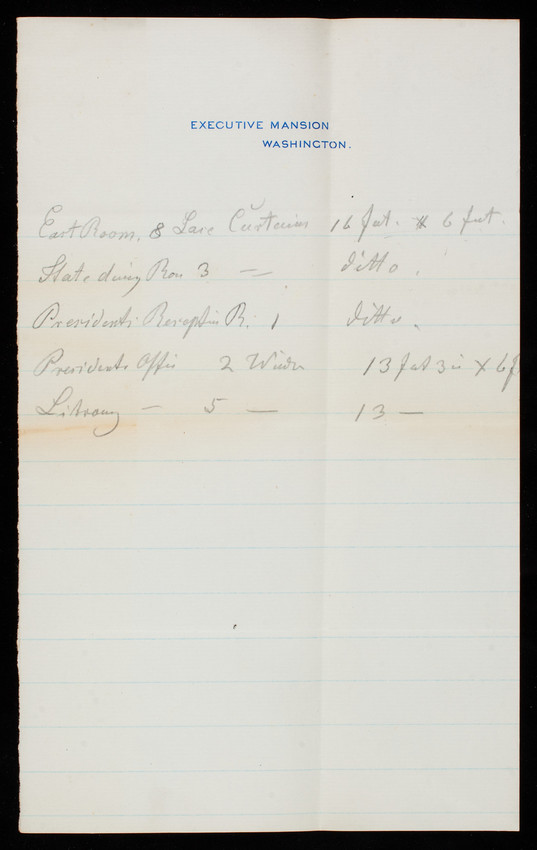 EXECUTIVE MANSION
WASHINGTON.
East Room, 8 Lace Curtains 16 feet. x 6 feet.
State dining Rom 3 — ditto.
Presidents Reception R. 1 ditto.
Presidents Offi 2 Windo 13 feet 3 in X 6 f
Library — 5 — 13 —